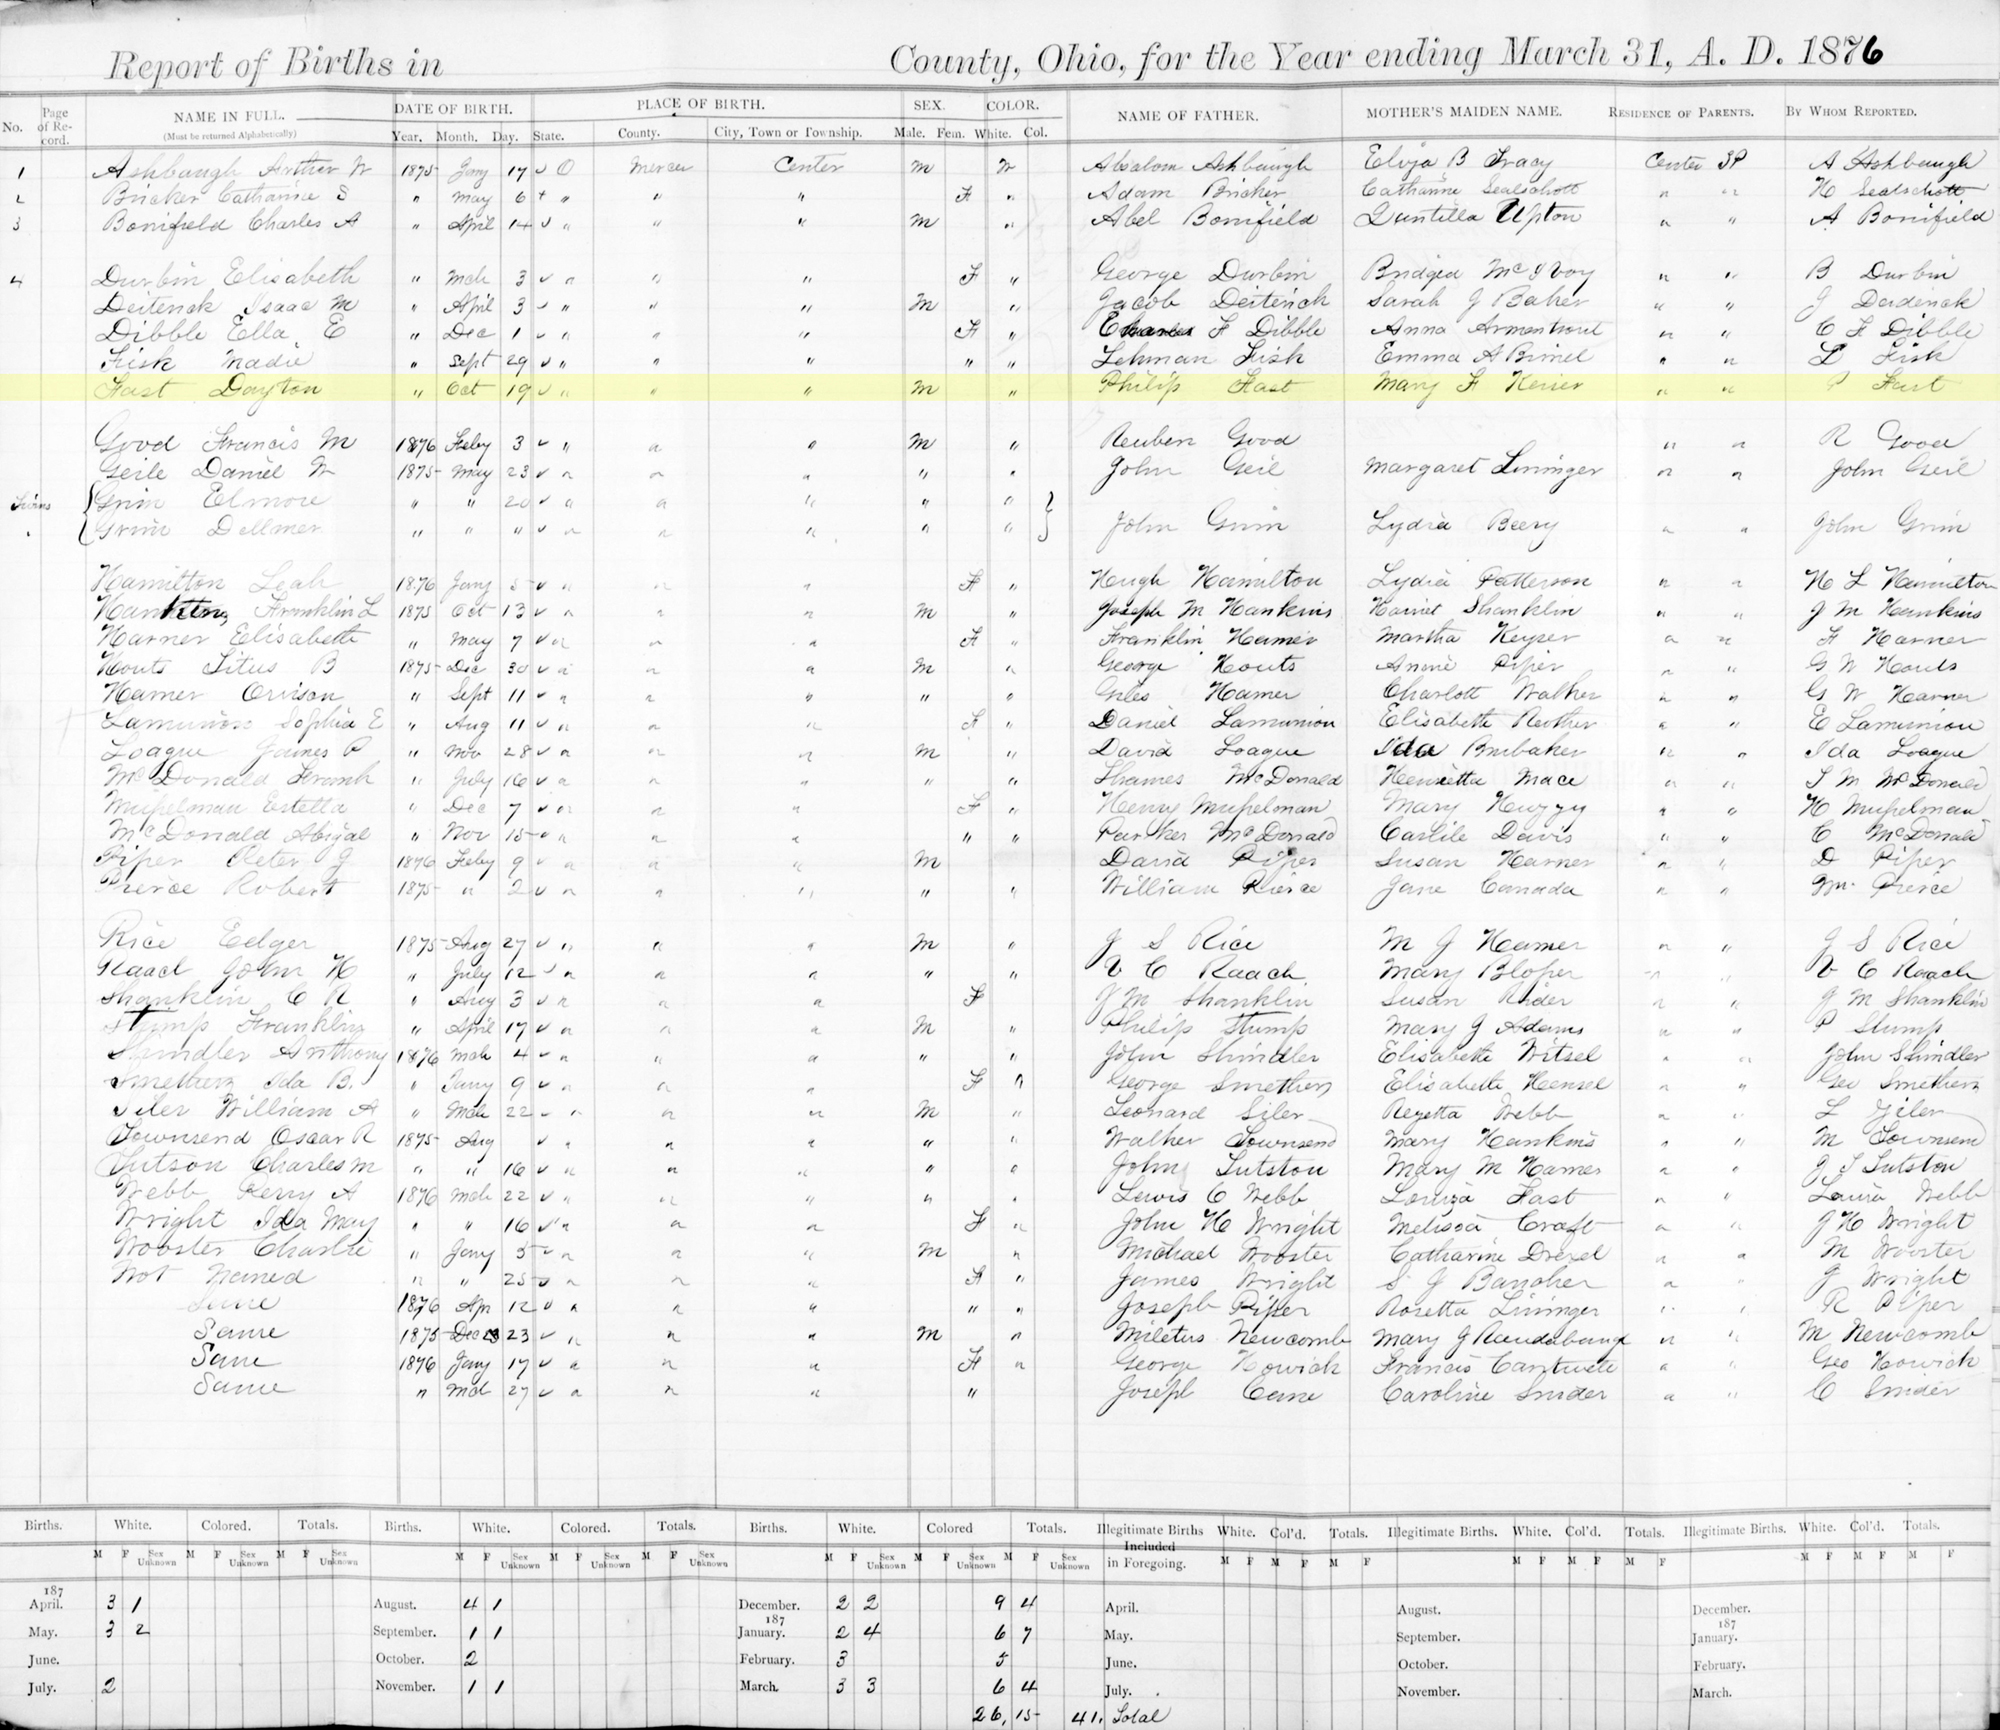 Report of Births in County, Ohio, for the Year ending March 31, A. D. 1876
No. Page of Record. NAME IN FULL. (Must be returned Alphabetically) DATE OF BIRTH. Year. Month. Day. PLACE OF BIRTH. State. County. City, Town or Township. SEX. Male. Fem. COLOR. White. Col. NAME OF FATHER. MOTHER'S MAIDEN NAME. RESIDENCE OF PARENTS. BY WHOM REPORTED.
1 Ashbaugh Arthur W 1875 Jany 17 O Mercer Center M W Absalom Ashbaugh Eliza B Tracy Center A Ashbaugh
2 Bricker Catharine S " May 6 " " " F " Adam Bricker Catharine Sealschott " " H Sealschott
3 Bonifield Charles A " April 14 " " " M " Abel Bonifield Quntilla Upton " " A Bonifield
4 Durbin Elisabeth " Mch 3 " " " F " George Durbin Bridged " " B Durbin
Deiterick Isaac M " April 3 " " " M " Jacob Deiterick Sarah J Baker " " J
Dibble Ella E " Dec 1 " " " F " Charles F Dibble Anna Armentrout " " C F Dibble
Fisk Madie " Sept 29 " " " " " Lehman Fisk Emma A " " L Fisk
Fast Dayton " Oct 19 " " " M " Philip Fast Mary F " " P Fast
Good Francis M 1876 Feby 3 " " " M " Reuben Good " " R Good
Geile Daniel W 1875 May 23 " " " " " John Geil Margaret Lininger " " John Geil
Twins Grim Elmore " " 20 " " " " "
" Grim Dellmer " " " " " " " " John Grim Lydia Beery " " John Grim
Hamilton Leah 1876 Jany 5 " " " F " Hugh Hamilton Lydia Patterson " " H L Hamilton
Hankins Franklin L 1875 Oct 13 " " " M " Joseph M Hankins Harriet Shanklin " " J M Hankins
Harner Elisabeth " May 7 " " " F " Franklin Harner Martha Keyser " " F Harner
Houts Titus B 1875 Dec 30 " " " M " George Houts Annie Piper " " G W Houts
Hamer Orvison " Sept 11 " " " " " Giles Hamer Charlott Walker " " G W Harner
Lamunion Sophia E " Aug 11 " " " F " Daniel Lamunion Elisabeth Reother " " E Lamunion
Loague James P " Nov 28 " " " M " David Loague Ida Brubaker " " Ida Loague
McDonald Frank " July 16 " " " " " McDonald Henrietta Mace " " McDonald
Musselman Estella " Dec 7 " " " F " Henry Musselman Mary Huzzy " " H Musselman
McDonald Abigal " Nov 15 " " " " " Parker McDonald Carlile Davis " " C McDonald
Piper Peter J 1876 Feby 9 " " " M David Piper Susan Harner " " D Piper
Pierce Robert 1875 " 2 " " " " " William Pierce Jane Canada " " Wm. Pierce
Rice Edger 1875 Aug 27 " " " M " J S Rice M J Hamer " " J S Rice
John H " July 12 " " " " " V C Raach Mary Bloper " " V C Raach
Shanklin C R " Aug 3 " " " F J M Shanklin Susan Rider " " J M Shanklin
Stump Franklin " April 17 " " " M " Philip Stump Mary J Adams " " P Stump
Shindler Anthony 1876 Mch 4 " " " " " John Shindler Elisabeth Witsel " " John Shindler
Smethers Ida B. " Jany 9 " " " F " George Smethers Elisabeth Hensel " " Geo Smethers
Siler William A " Mch 22 " " " M " Leonard Siler Regetta Webb " " L Siler
Townsend Oscar R 1875 Aug " " " " " Walker Townsend Mary Hankins " " M Townsend
Tutson Charles M " " 16 " " " " " John Tutston Mary M Hamer " " J T Tutston
Webb Perry A 1876 Mch 22 " " " " " Lewis C Webb Louiza Fast " " Webb
Wright Ida May " " 16 " " " F " John H Wright Melissa Craft " " J H Wright
Wooster Charlie " Jany 5 " " " M " Michael Wooster Catharine Drexel " " M Wooster
Not Named " " 25 " " " F " James Wright S J " " J Wright
Same 1876 Apr 12 " " " " " Joseph Piper Rosetta Lininger " " R Piper
Same 1875 Dec 23 " " " M " Miletus Newcomb Mary J " " M Newcomb
Same 1876 Jany 17 " " " F " George Howick Francis Cantwell " " Geo Howick
Same " Mch 27 " " " " Joseph Cane Caroline Snider " " C Snider
Births. White. Colored. Totals. Births. White. Colored. Totals. Births. White. Colored Totals. Illegitimate Births Included in Foregoing. White. Col'd. Totals. Illegitimate Births. White. Col'd. Totals. Illegitimate Births. White. Col'd. Totals.
M F Sex Unknown M F Sex Unknown M F Sex Unknown M F Sex Unknown M F Sex Unknown M F Sex Unknown M F Sex Unknown M F Sex Unknown M F Sex Unknown M F M F M F M F M F M F M F M F M F
187 April. 3 1 August. 4 1 December. 2 2 9 4 April. August. December.
May. 3 2 September. 1 1 187 January. 2 4 6 7 May. September. 187 January.
June. October. 2 February. 3 5 June. October. February.
July. 2 November. 1 1 March. 3 3 6 4 July. November. March.
26, 15 41. Total